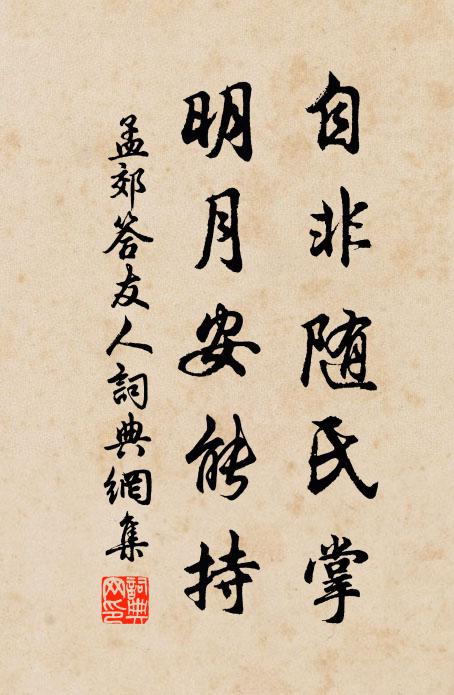 自非随氏掌
明月安能持
孟郊答友人詞典網集
詞典网印